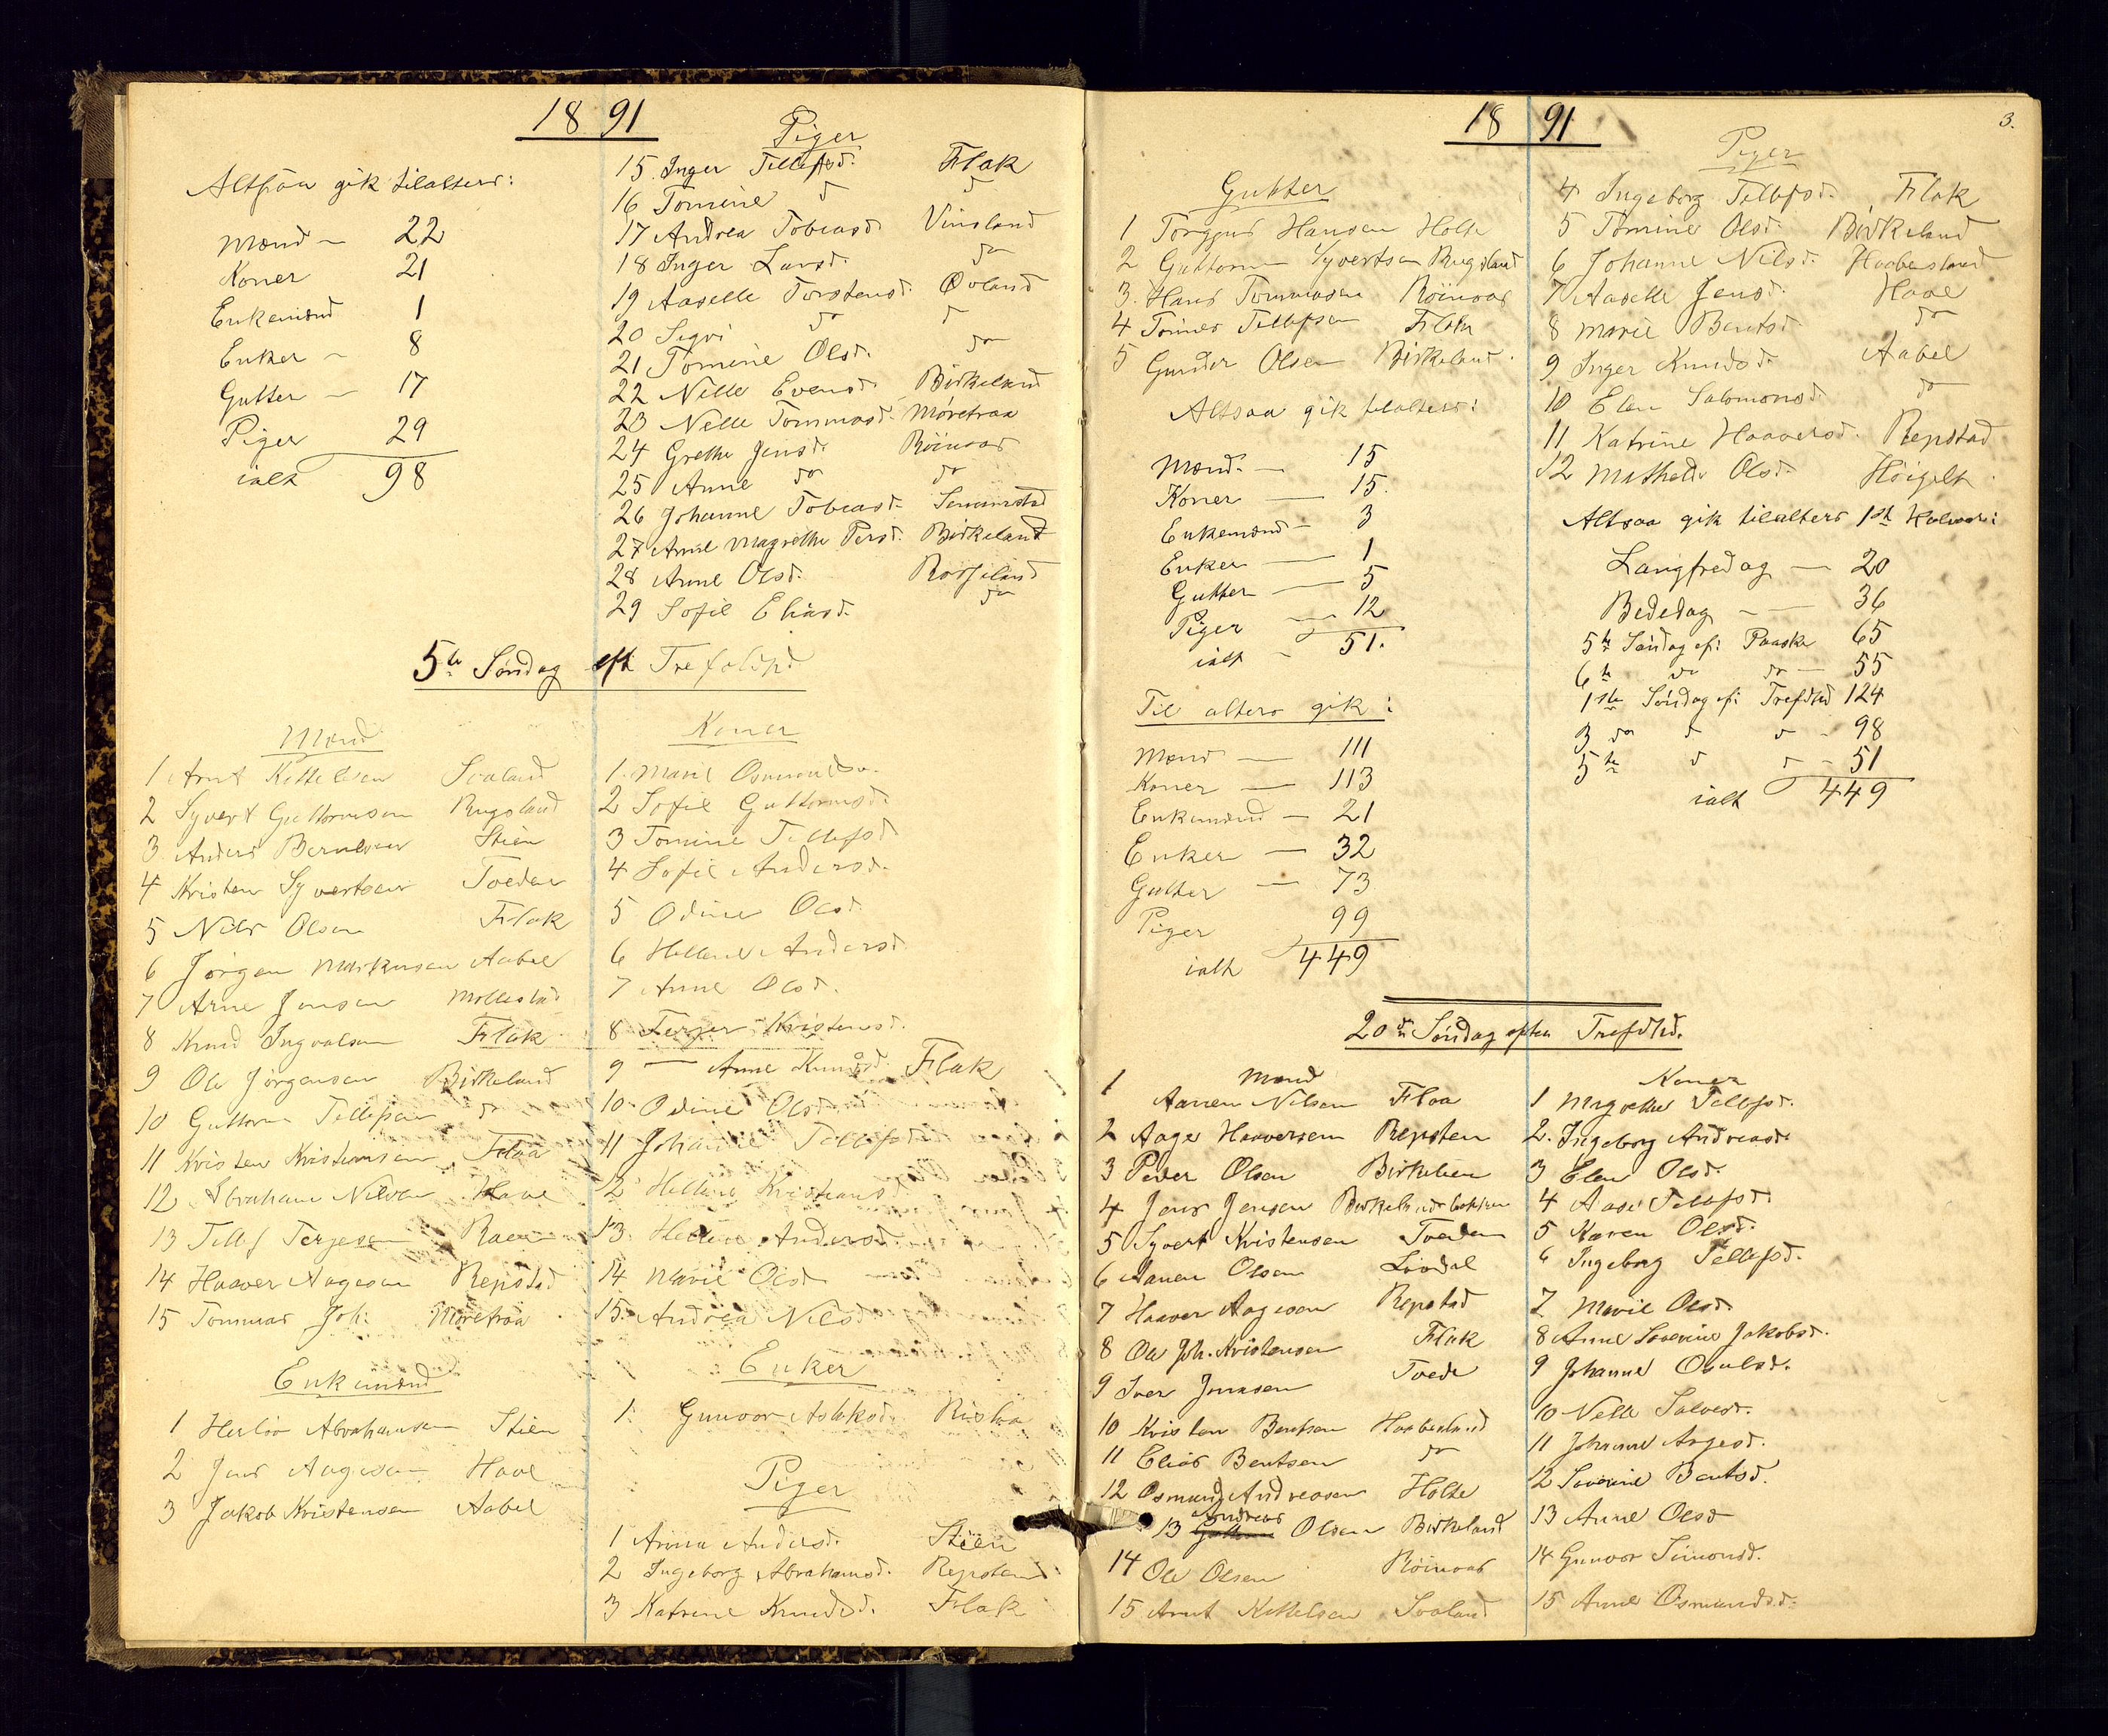 1891
Altsaa gik tilalters:
Mænd - 22
Koner 21
Enkemænd 1
Enker - 8
Gutter - 17
Piger 29
ialt 98
Piger
15. Inger Tellefsd. Flak
16 Tomine do do
17 Andrea Tobiasd. Vinsland
18 Inger Larsd. do
19 Aaselle Torstensd. Øvland
20 Sigri do do
21 Tomine Olsd. do
22 Nelle Evensd. Birkeland
23 Nelle Tommasd. Møretraa
24 Grethe Jensd. Röinaas
25 Anne do do
26 Johanne Tobiasd.
27 Anne Magrethe Persd. Birkeland
28 Anne Olsd. Rosseland
29 Sofie Eliasd. do
5te Søndag eft Trefoldhd
Mænd
1 Arnt Kittelsen Svaland
2 Syvert Guttormsen Rugsland
3 Anders Berntsen Stien
4 Kristen Syvertsen Tveden
5 Nils Olsen Flak
6 Jörgen Markusen Aabel
7 Arne Jensen Mollestad
8 Knud Ingvalsen Flak
9 Ole Jørgensen Birkeland
10 Guttorm Tellefsen do
11 Kristen Kristensen Flaa
12 Abraham Nilsen Haae
13 Tellef Terjesen Raen
14 Haaver Aagesen Repstad
15 Tommas Joh. Møretraa
Enkemænd
1 Abrahamsen Stien
2 Jens Aagesen Haae
3 Jakob Kristensen Aabel
Koner
1. Marie Osmundsd.
2 Sofie Guttormsd.
3 Tomine Tellefsd
4 Sofie Andersd.
5 Odine Olsd.
6 Hellene Andersd.
7 Anne Olsd.
8 Terjer Kristensd.
9 — Anne Knudsd. Flak
10. Odine Olsd.
11 Johanne Tellefsd
12 Hellene Kristiansd
13. Hellene Andersd.
14 Marie Olsd
15. Andrea Nilsd.
Enker
1. Gunvor Aslaksd. Rislaa
Piger
1 Anna Andersd. Stien
2 Ingeborg Abrahamsd. Repsten
3 Katrine Knudsd. Flak
1891
3.
Gutter
1 Torgjus Hansen Holte
2 Guttorm Syvertsen Rugsland
3. Hans Tommasen Röinaas
4 Tönnes Tellefsen Flak
5 Gunder Olsen Birkeland.
Altsaa gik tilalters:
Mænd. — 15
Koner — 15.
Enkemænd - 3
Enker — 1
Gutter — 5
Piger — 12
ialt - 51.
Til alters gik:
Mænd — 111
Koner — 113
Enkemænd — 21
Enker — 32
Gutter — 73
Piger 99
ialt 449
Piger
4 Ingeborg Tellefsd. Flak
5 Tomine Olsd. Birkeland
6 Johanne Nilsd. Haabesland
7 Aaselle Jensd. Haae
8 Marie Bentsd. do
9 Inger Knudsd. Aabel
10 Elen Salomonsd. do
11 Katrine Haaversd. Repstad
12 Mathilde Olsd. Höigilt
Altsaa gik tilalters 1st Halvaar:
Langfredag — 20
Bededag — 36
5te Søndag ef: Paaske 65
6te do do — 55
1ste Søndag ef: Trefdhd 124
3 do do do - 98
5te do do - 51
ialt 449
20de Søndag eften Trefdhd.
Mænd
1 Aanen Nilsen Flaa
2 Aage Haaversen Repsten
3 Peder Olsen Birkelien
4 Jens Jensen Birkelandsbakken
5 Syvert Kristensen Tveden
6 Aanen Olsen Lövdal
7 Haaver Aagesen Repstad
8 Ole Joh. Kristensen Flak
9 Iver Jonasen Tvede
10 Kristen Bentsen Haabesland
11 Elias Bentsen do
12 Osmund Andreasen Holte
Andreas
13 Guttorm Olsen Birkeland
14 Ole Olsen Röinaas
15 Arnt Kittelsen Svaland
Koner
1 Magrethe Tellefsd.
2. Ingeborg Andreasd.
3 Elen Olsd.
4 Aase Tellefsd.
5 Karen Olsd.
6 Ingeborg Tellefsd.
7 Marie Olsd.
8 Anne Severine Jakobsd.
9 Johanne Osulsd.
10 Nelle Salvesd.
11 Johanne Aagesd.
12 Severine Bentsd.
13 Anne Olsd
14 Gunvor Simonsd.
15 Anne Osmundsd.